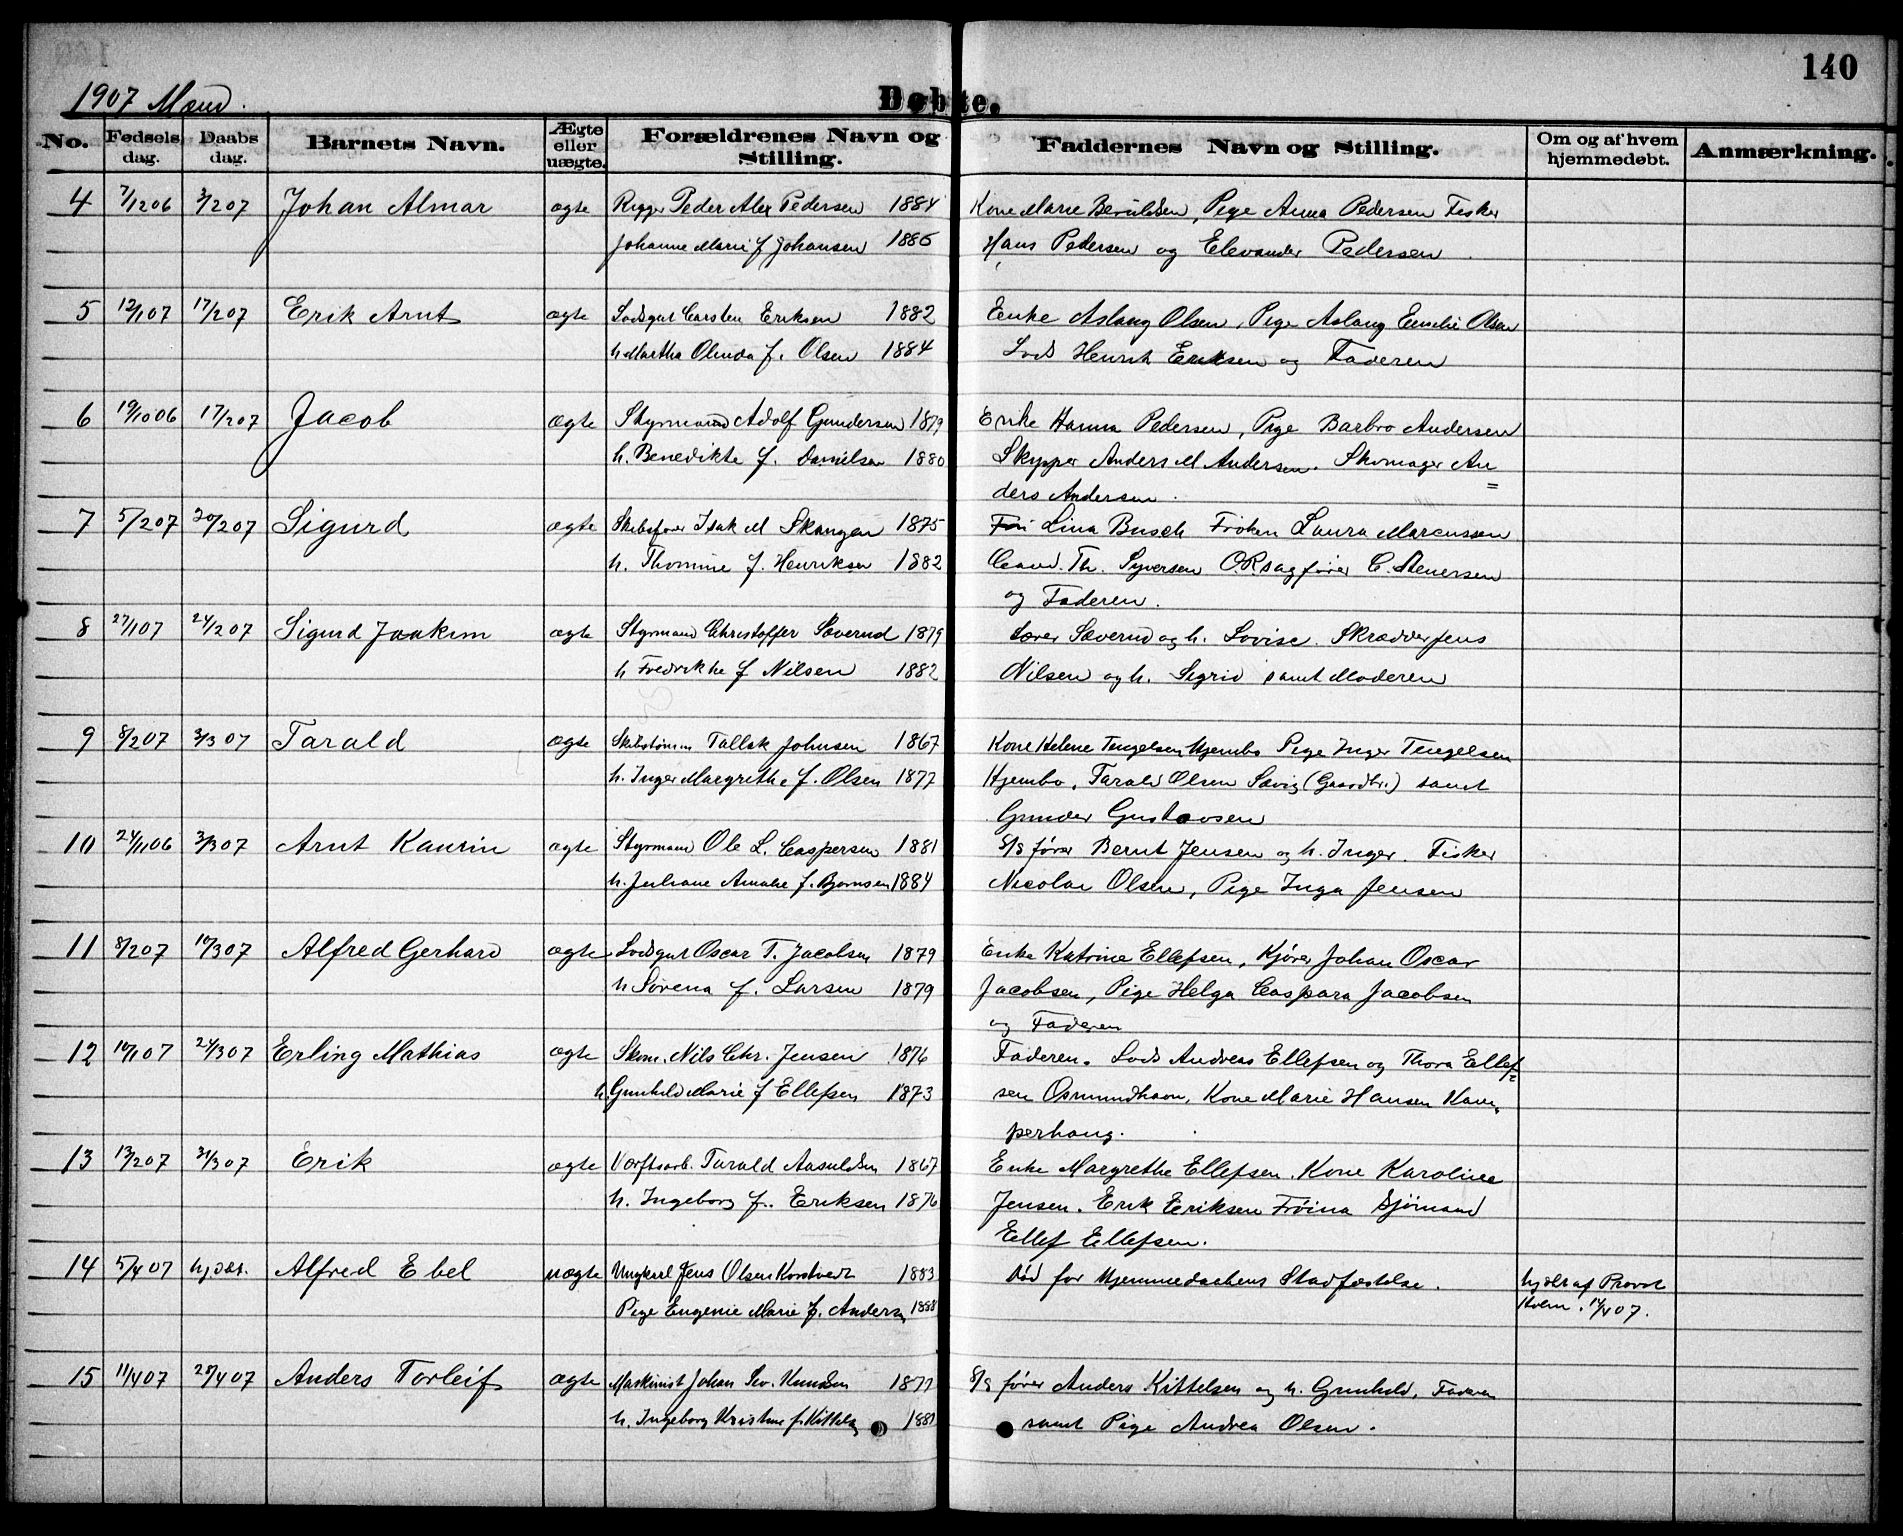 140
1907 Mænd.
Døbte.
No. Fødsels dag. Daabs dag. Barnets Navn. Ægte eller uægte. Forældrenes Navn og Stilling. Faddernes Navn og Stilling. Om og af hvem hjemmedøbt. Anmærkning.
4 7/12 06 3/2 07 Johan Almar ægte Rigger Peder Alex Pedersen 1884 Kone Marie Beruldsen, Pige Anna Pedersen Fisker
Johanne Marie f Johansen 1886 Hans Pedersen og Elevander Pedersen.
5 12/1 07 17/2 07 Erik Arnt ægte Lodsgut Carsten Eriksen 1882 Enke Aslaug Olsen, Pige Aslaug Emelie Olsen
h Martha Olinda f. Olsen 1884 Lods Henrik Eriksen og Faderen
6 19/10 06 17/2 07 Jacob ægte Styrmand Adolf Gundersen 1879 Enke Hanna Pedersen, Pige Barbro Andersen
h. Benedikte f. Danielsen 1880 Skypper Anders M Andersen. Skomager An=
ders Andersen.
7 5/2 07 20/2 07 Sigurd ægte Skibsfører Isak M Skangen 1875 Lina Busch Frøken Laura Marcussen
h. Thomine f. Henriksen 1882 Cand. Th. Syversen ORsagfører C. Stenersen
og Faderen.
8 27/1 07 24/2 07 Sigurd Joakim ægte Styrmand Christoffer Sæverud 1879 Lærer Sæverud og h. Lovise. Skrædder Jens
h Fredrikke f Nilsen 1882 Nilsen og h. Sigrid samt Moderen
9 8/2 07 3/3 07 Tarald ægte Skibstømm Tallak Johnsen 1867 Kone Helene Tengelsen Hjembo Pige Inger Tengelsen
h. Inger Margrethe f. Olsen 1877 Hjembo, Tarald Olsen Sævig (Gaardbr.) samt
Gunder Gustavsen
10 24/11 06 3/3 07 Arnt Kaurin ægte Styrmand Ole L. Caspersen 1881 S/S fører Bernt Jensen og h. Inger. Fisker
h. Juliane Amalie f. Bjørnsen 1884 Nicolai Olsen, Pige Inga Jensen
11 8/2 07 10/3 07 Alfred Gerhard ægte Lodsgut Oscar T. Jacobsen 1879 Enke Katrine Ellefsen, Kjører Johan Oscar
h Sørena f. Larsen 1879 Jacobsen, Pige Helga Caspara Jacobsen
og Faderen
12 10/1 07 24/3 07 Erling Mathias ægte Skom. Nils Chr. Jensen 1876 Faderen. Lods Andreas Ellefsen og Thora Ellef=
h. Gunhild Marie f Ellefsen 1873 sen Osmundhavn, Kone Marie Hansen Kam,
perhaug.
13 13/2 07 31/3 07 Erik ægte Værftsarb. Tarald Aasuldsen 1867 Enke Margrethe Ellefsen. Kone Karoline
h. Ingeborg f. Eriksen 1876 Jensen. Erik Eriksen Frøina Sjømand
Ellef Ellefsen.
14 5/4 07 hjdøbt. Alfred Ebel uægte Ungkarl Jens Olsen Korstvedt 1883 Død før Hjemmedaabens Stadfæstelse. hjdøbt af Provst
Pige Eugenie Marie f. Andersen 1888 Holm. 14/4 07.
15 11/4 07 28/4 07 Anders Torleif ægte Maskinist Johan Sev. Knudsen 1877 S/S fører Anders Kittelsen og h. Gunhild, Faderen
h. Ingeborg Kristine f. Kittels 1881 samt Pige Andrea Olsen.